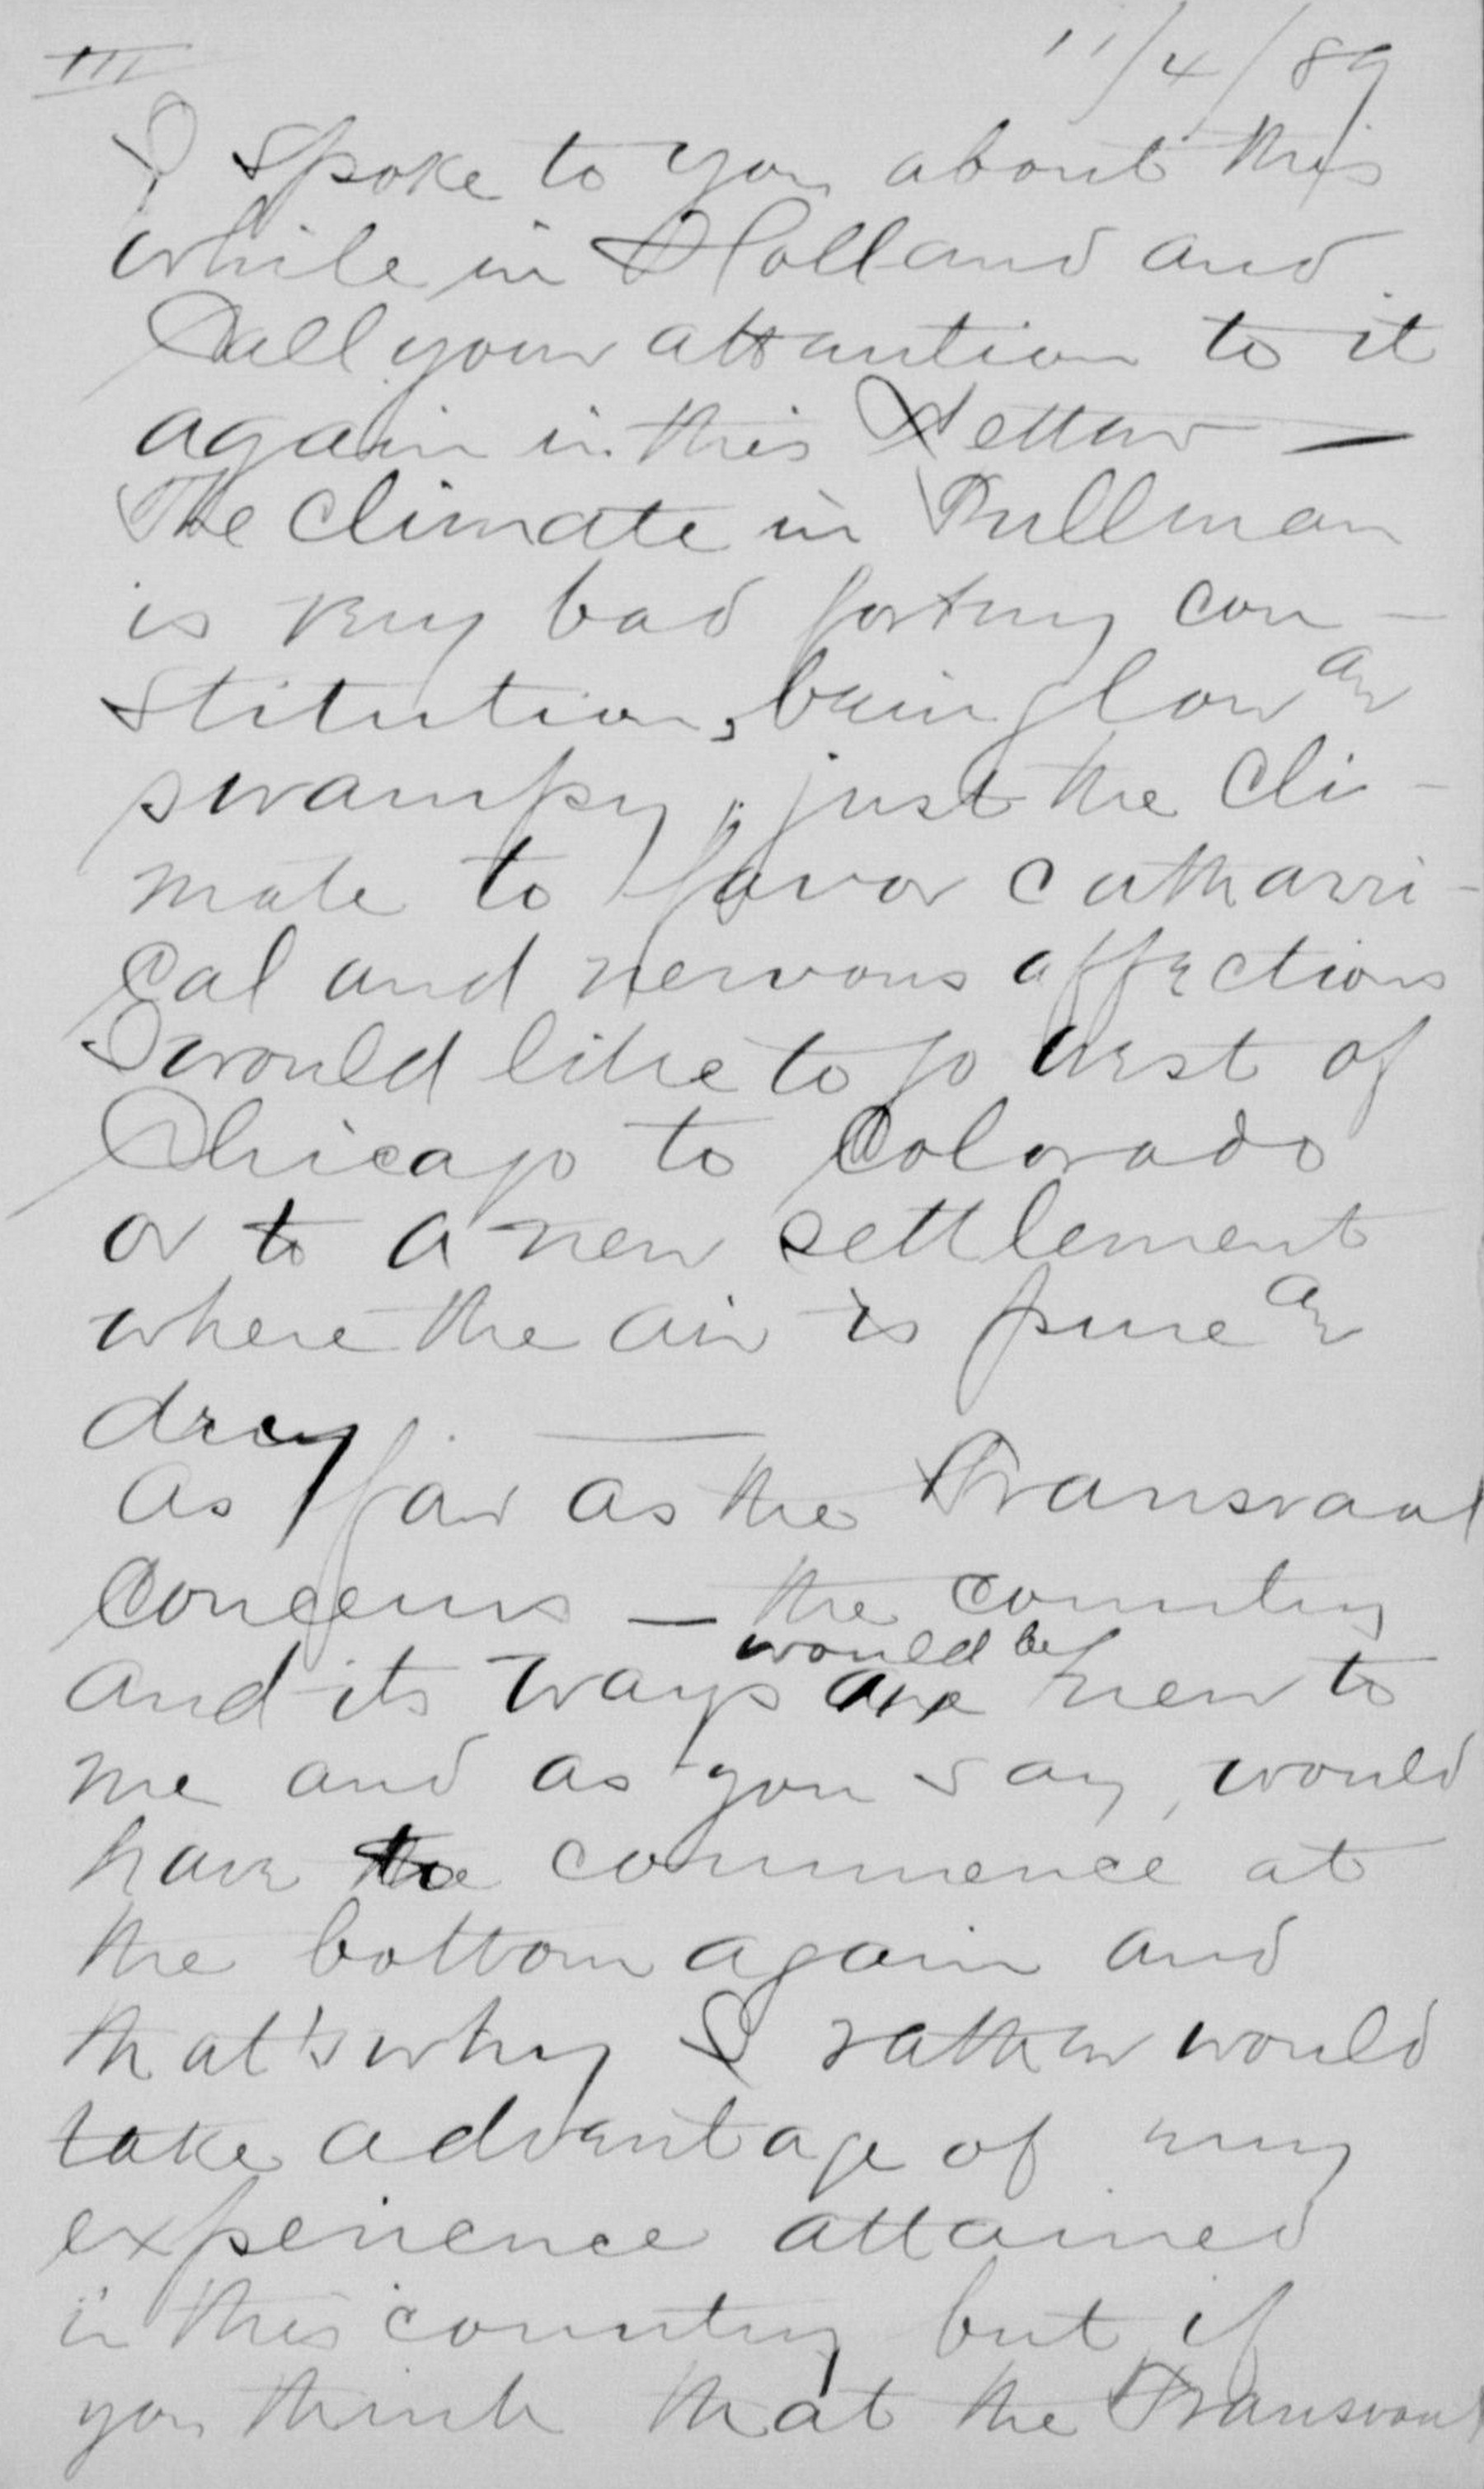 III 11/4/89
I spoke to you about this
while in Holland and
Call your attantion to it
again in this Letter —
The Climate in Pullman
is very bad for my con-
stitution, being low an
swampy, just the Cli-
mate to favor catharri-
cal and nervous affections
I would like to go west of
Chicago to Colorado
or to a new settlement
where the air is pure an
drey —
As far as the Transvaal
Concerns — the country
would be
and its ways are new to
me and as you say, would
have to commence at
the bottom again and
that's why I rather would
take advantage of my
experience attained
in this country but if
you think that the Transvaal